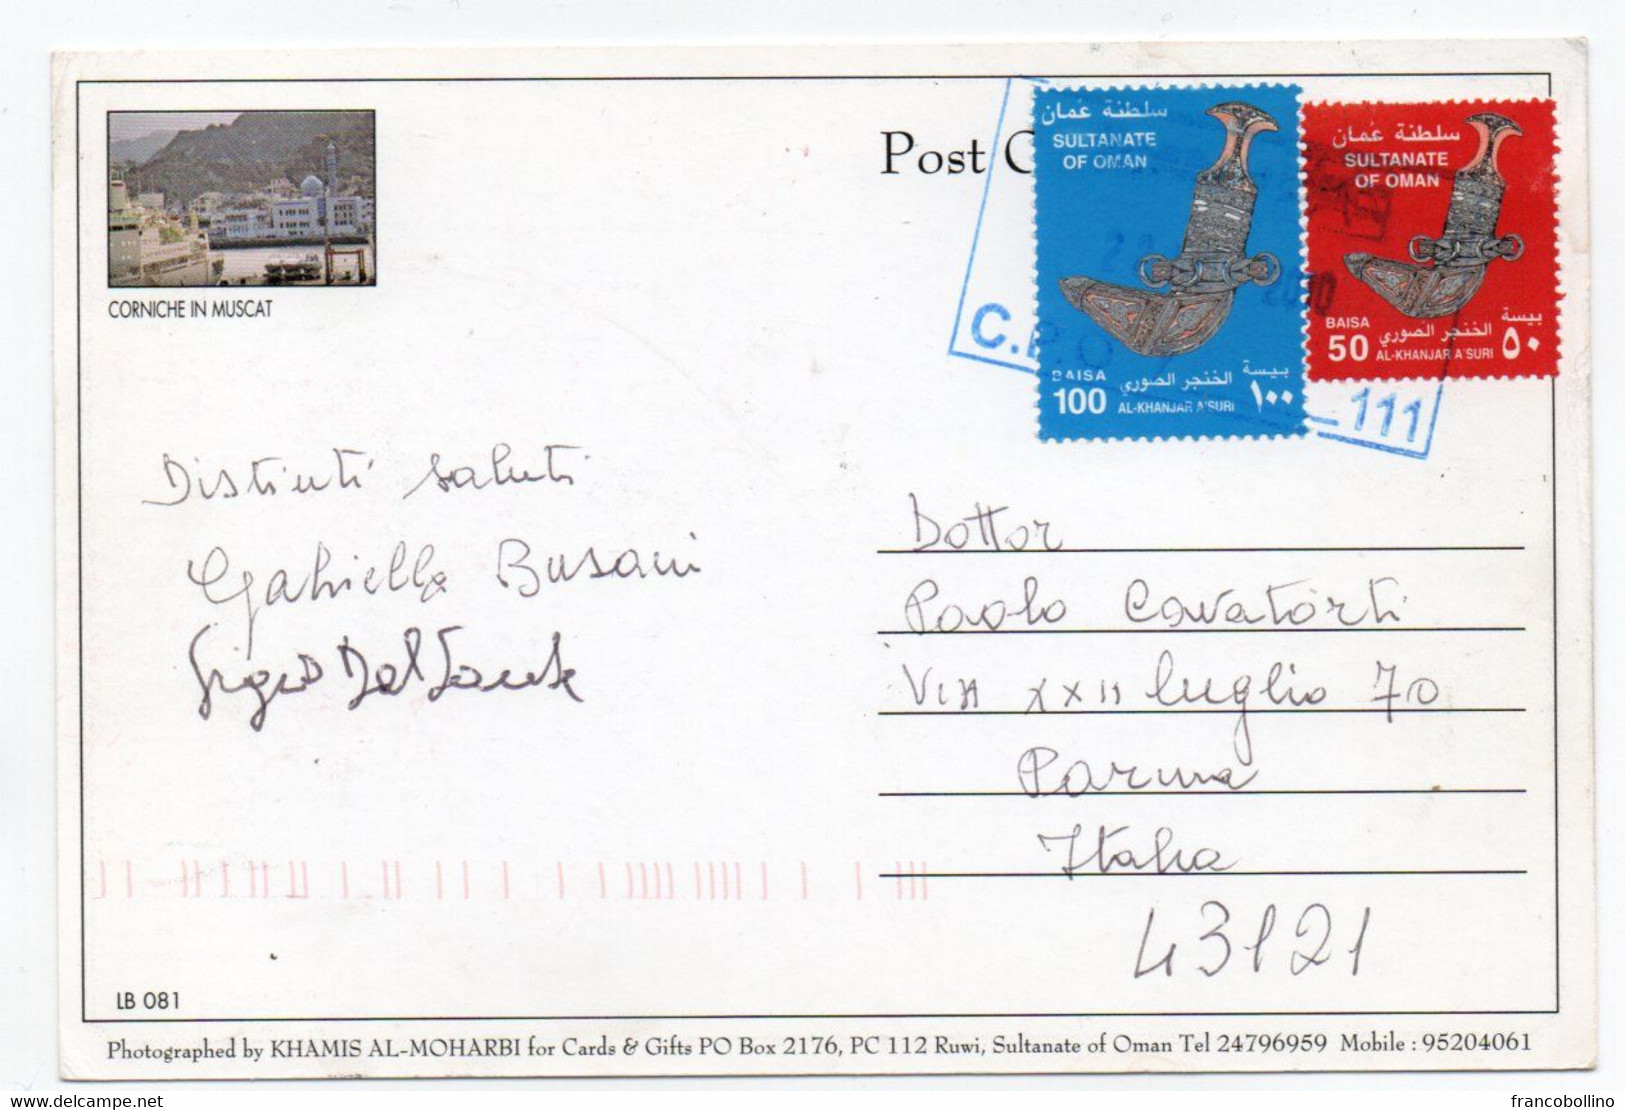 Post C
سلطنة عُمان
SULTANATE
OF OMAN
BAISA
100
الخنجر الصوري
AL-KHANJAR A'SURI
بيسة
١٠٠
سلطنة عُمان
SULTANATE
OF OMAN
BAISA
50
الخنجر الصوري
AL-KHANJAR A'SURI
بيسة
٥٠
C.P.O
111
CORNICHE IN MUSCAT
Distinti saluti
Gabriella Busani
Dottor
Paolo Cavatorti
VIA XXII luglio 70
Parma
Italia
43121
LB 081
Photographed by KHAMIS AL-MOHARBI for Cards & Gifts PO Box 2176, PC 112 Ruwi, Sultanate of Oman Tel 24796959 Mobile : 95204061
delcampe.net
francobollino